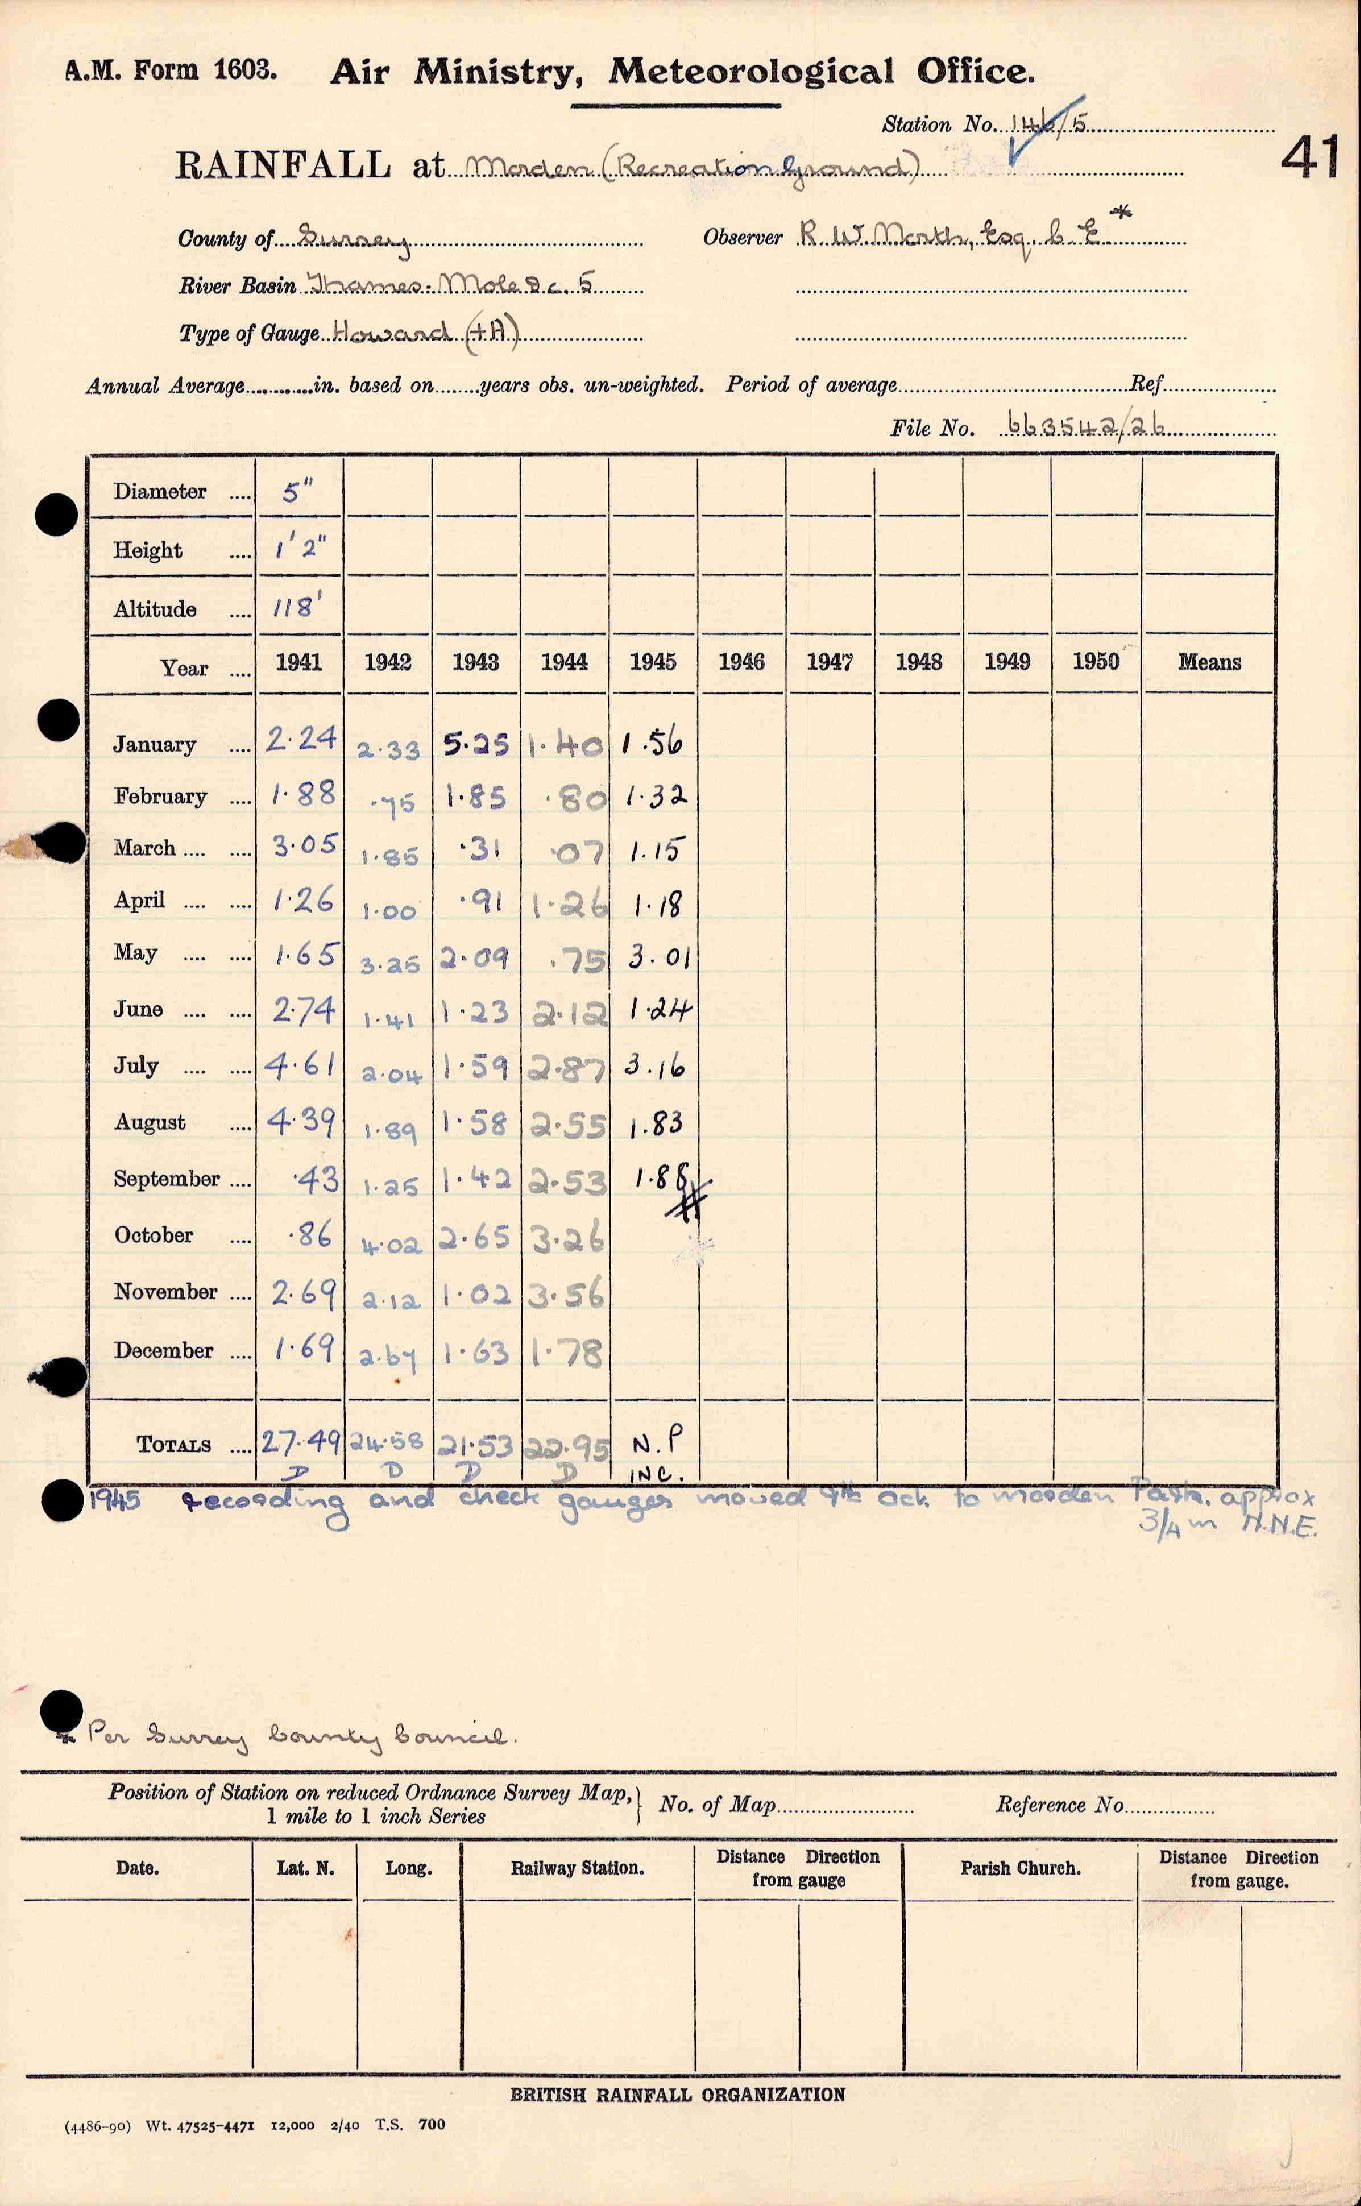 A.M. Form 1603. Air Ministry, Meteorological Office.
Station No. 146/5
41
RAINFALL at Morden (Recreation Ground)
County of Surrey Observer R. W. North, Esq. C. E *
River Basin Thames. Mole &c. 5
Type of Gauge Howard (+A)
Annual Average in. based on years obs. un-weighted. Period of average Ref.
File No. 663542/26
Diameter .... 5"
Height .... 1' 2"
Altitude .... 118'
Year .... 1941 1942 1943 1944 1945 1946 1947 1948 1949 1950 Means
January .... 2.24 2.33 5.25 1.40 1.56
February .... 1.88 .75 1.85 .80 1.32
March .... .... 3.05 1.85 .31 .07 1.15
April .... .... 1.26 1.00 .91 1.26 1.18
May .... .... 1.65 3.25 2.09 .75 3.01
June .... .... 2.74 1.41 1.23 2.12 1.24
July .... .... 4.61 2.04 1.59 2.87 3.16
August .... 4.39 1.89 1.58 2.55 1.83
September .... .43 1.25 1.42 2.53 1.88
October .... .86 4.02 2.65 3.26
November .... 2.69 2.12 1.02 3.56
December .... 1.69 2.67 1.63 1.78
TOTALS .... 27.49 24.58 21.53 22.95 N.P
D D D D INC.
1945 recording and check gauges moved 9th Oct. to Morden Park. approx
3/4 m N.N.E.
* Per Surrey County Council.
Position of Station on reduced Ordnance Survey Map, } No. of Map Reference No.
1 mile to 1 inch Series
Date. Lat. N. Long. Railway Station. Distance Direction from gauge Parish Church. Distance Direction from gauge.
BRITISH RAINFALL ORGANIZATION
(4486-90) Wt. 47525-4471 12,000 2/40 T.S. 700